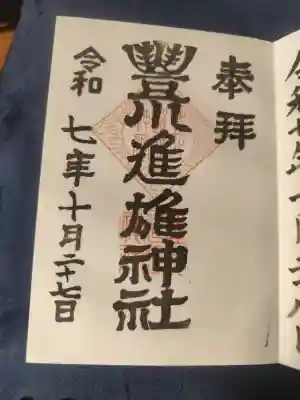 奉拝
豐川進雄神社
令和七年十月二十七日